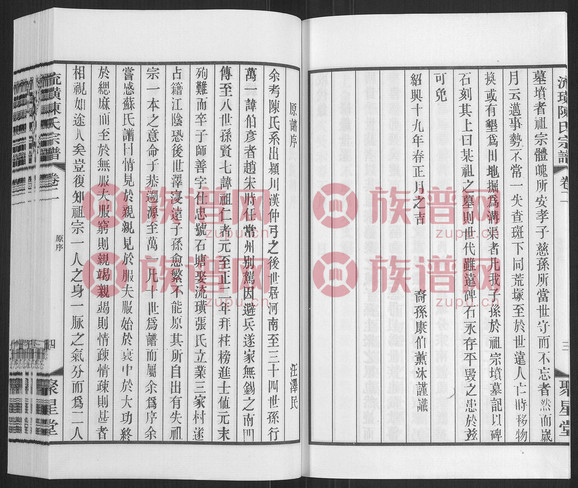 流璜陳氏宗譜 卷二
三
聚星堂
墓墳者祖宗體魄所安孝子慈孫所當世守而不忘者然而歲
月云邁事勢不常一失查斑下同荒塚至於世遠人亡時移物
換或有墾爲田地掘爲溝渠者凡我子孫於祖宗墳墓記以碑
石刻其上曰某祖之墓則世代雖遠碑石永存平毀之患於兹
可免
紹興十九年春正月之吉
裔孫康伯薰沐謹識
原譜序
汪澤民
余考陳氏系出潁川漢仲弓之後世居河南至三十四世孫行
萬一諱伯彥者趙宋時任常州別駕因避兵遂家無錫之南
傳至八世孫賢七諱祖仁者元至正二年拜柱榜進士值元末
殉難而卒子師善字仕忠號石塘娶流璜張氏立業三家村遂
占籍江陰恐後世澤浸遠子孫愈繁不能原其所自出有失祖
宗一本之意命子恭邇溥至萬一凡十世爲譜而屬余爲序余
嘗感蘇氏譜曰情見於親親見於服夫服始於衰中於大功終
於緦麻而至於無服夫服窮則親竭親竭則情疎情疎則甚者
相視如途人矣豈復知祖宗一人之身一脉之氣分而爲二人
流璜陳氏宗譜 卷二
原序
四
聚星堂
族谱网
zupu.cn
族谱网
zupu.cn
族谱网
zupu.cn
族谱网
zupu.cn